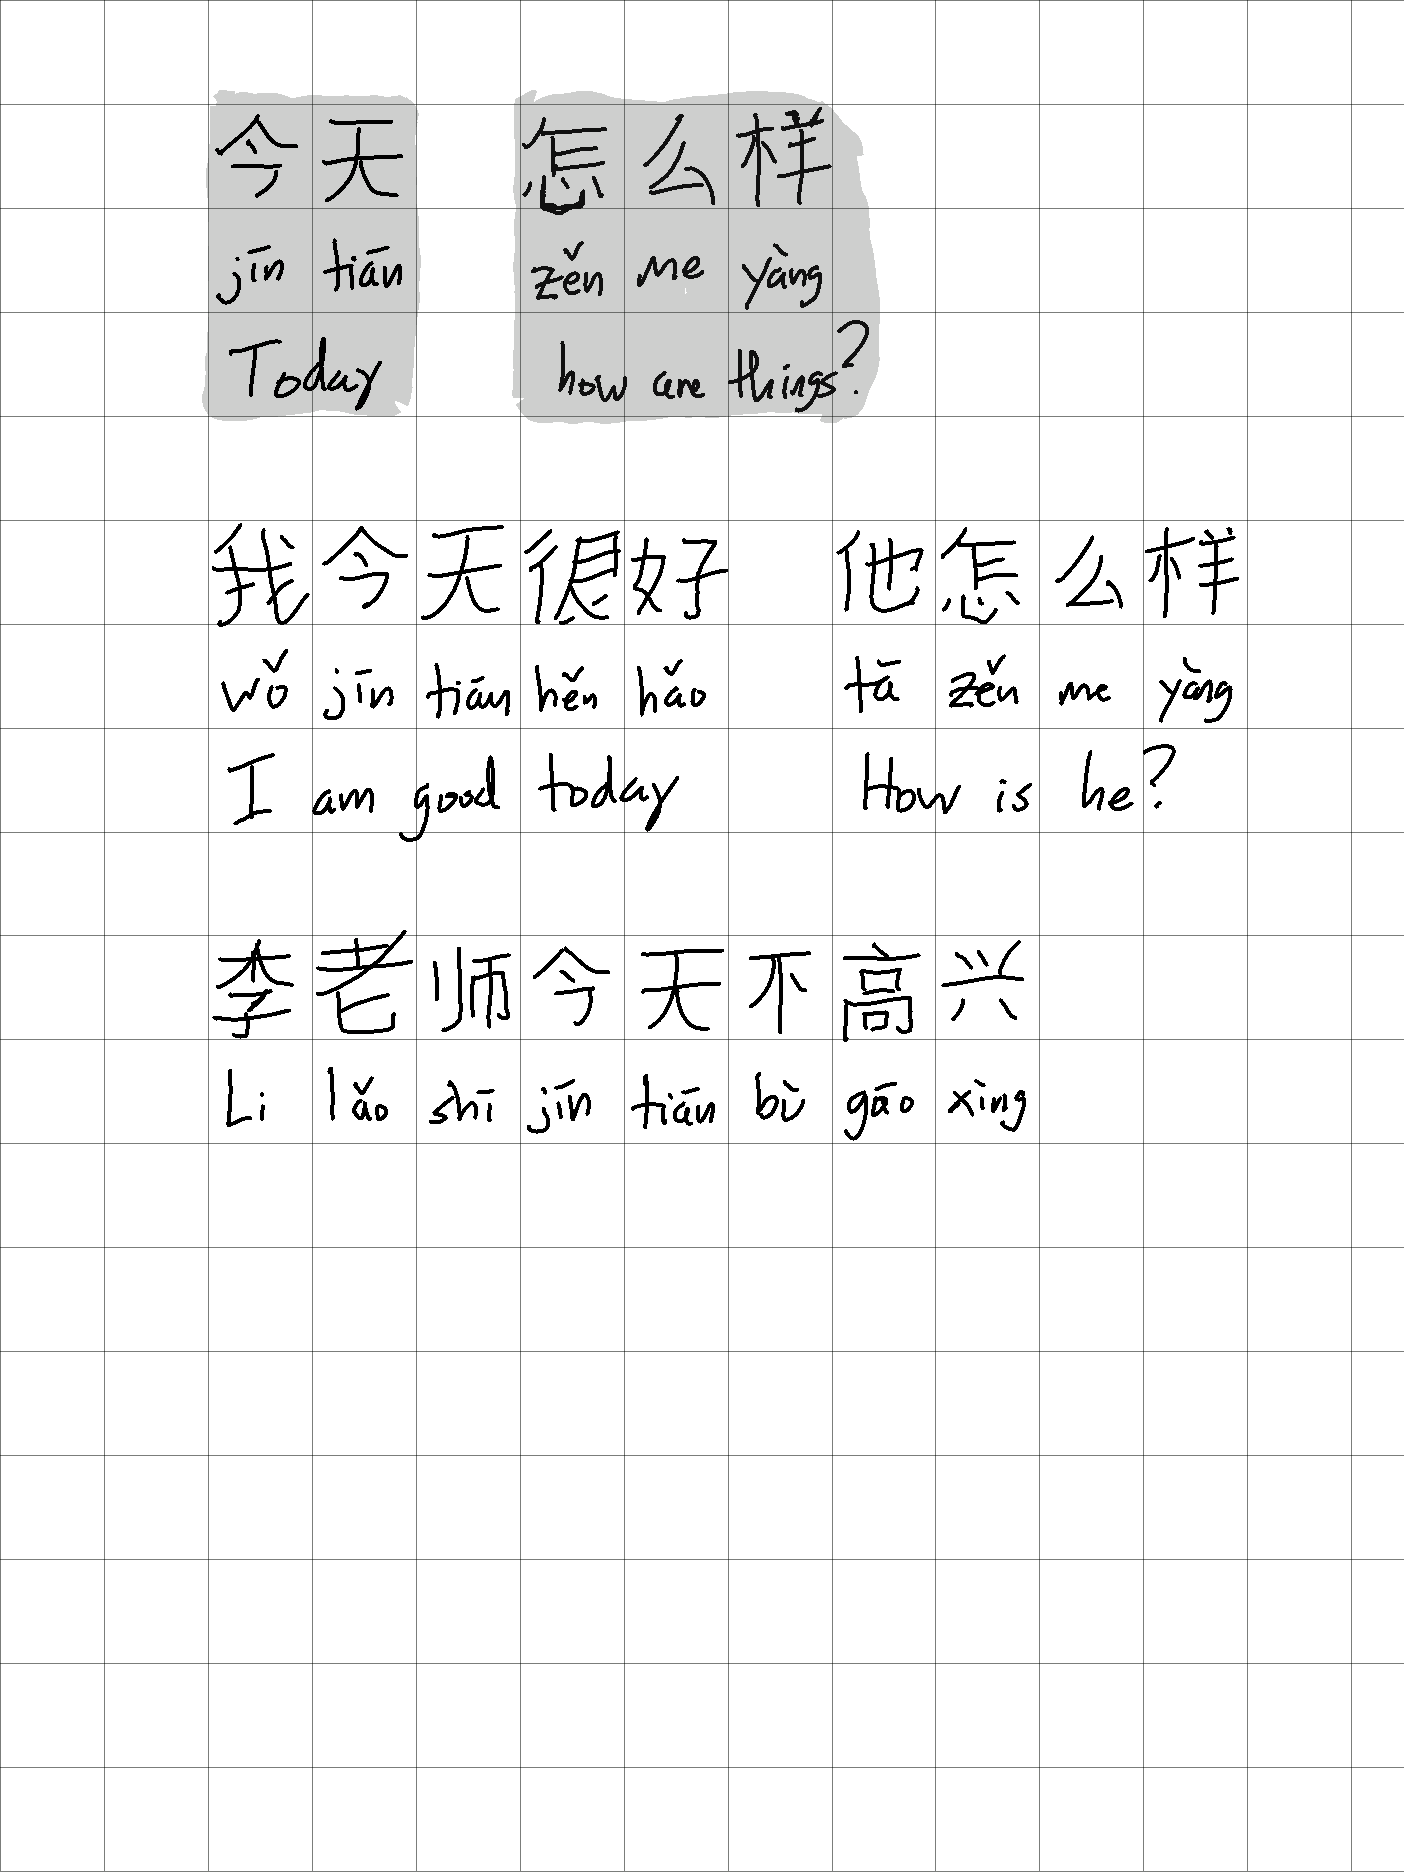 今天 怎么样
jīn tiān zěn me yàng
Today how are things?
我今天很好 他怎么样
wǒ jīn tiān hěn hǎo tā zěn me yàng
I am good today How is he?
李老师今天不高兴
Li lǎo shī jīn tiān bù gāo xìng